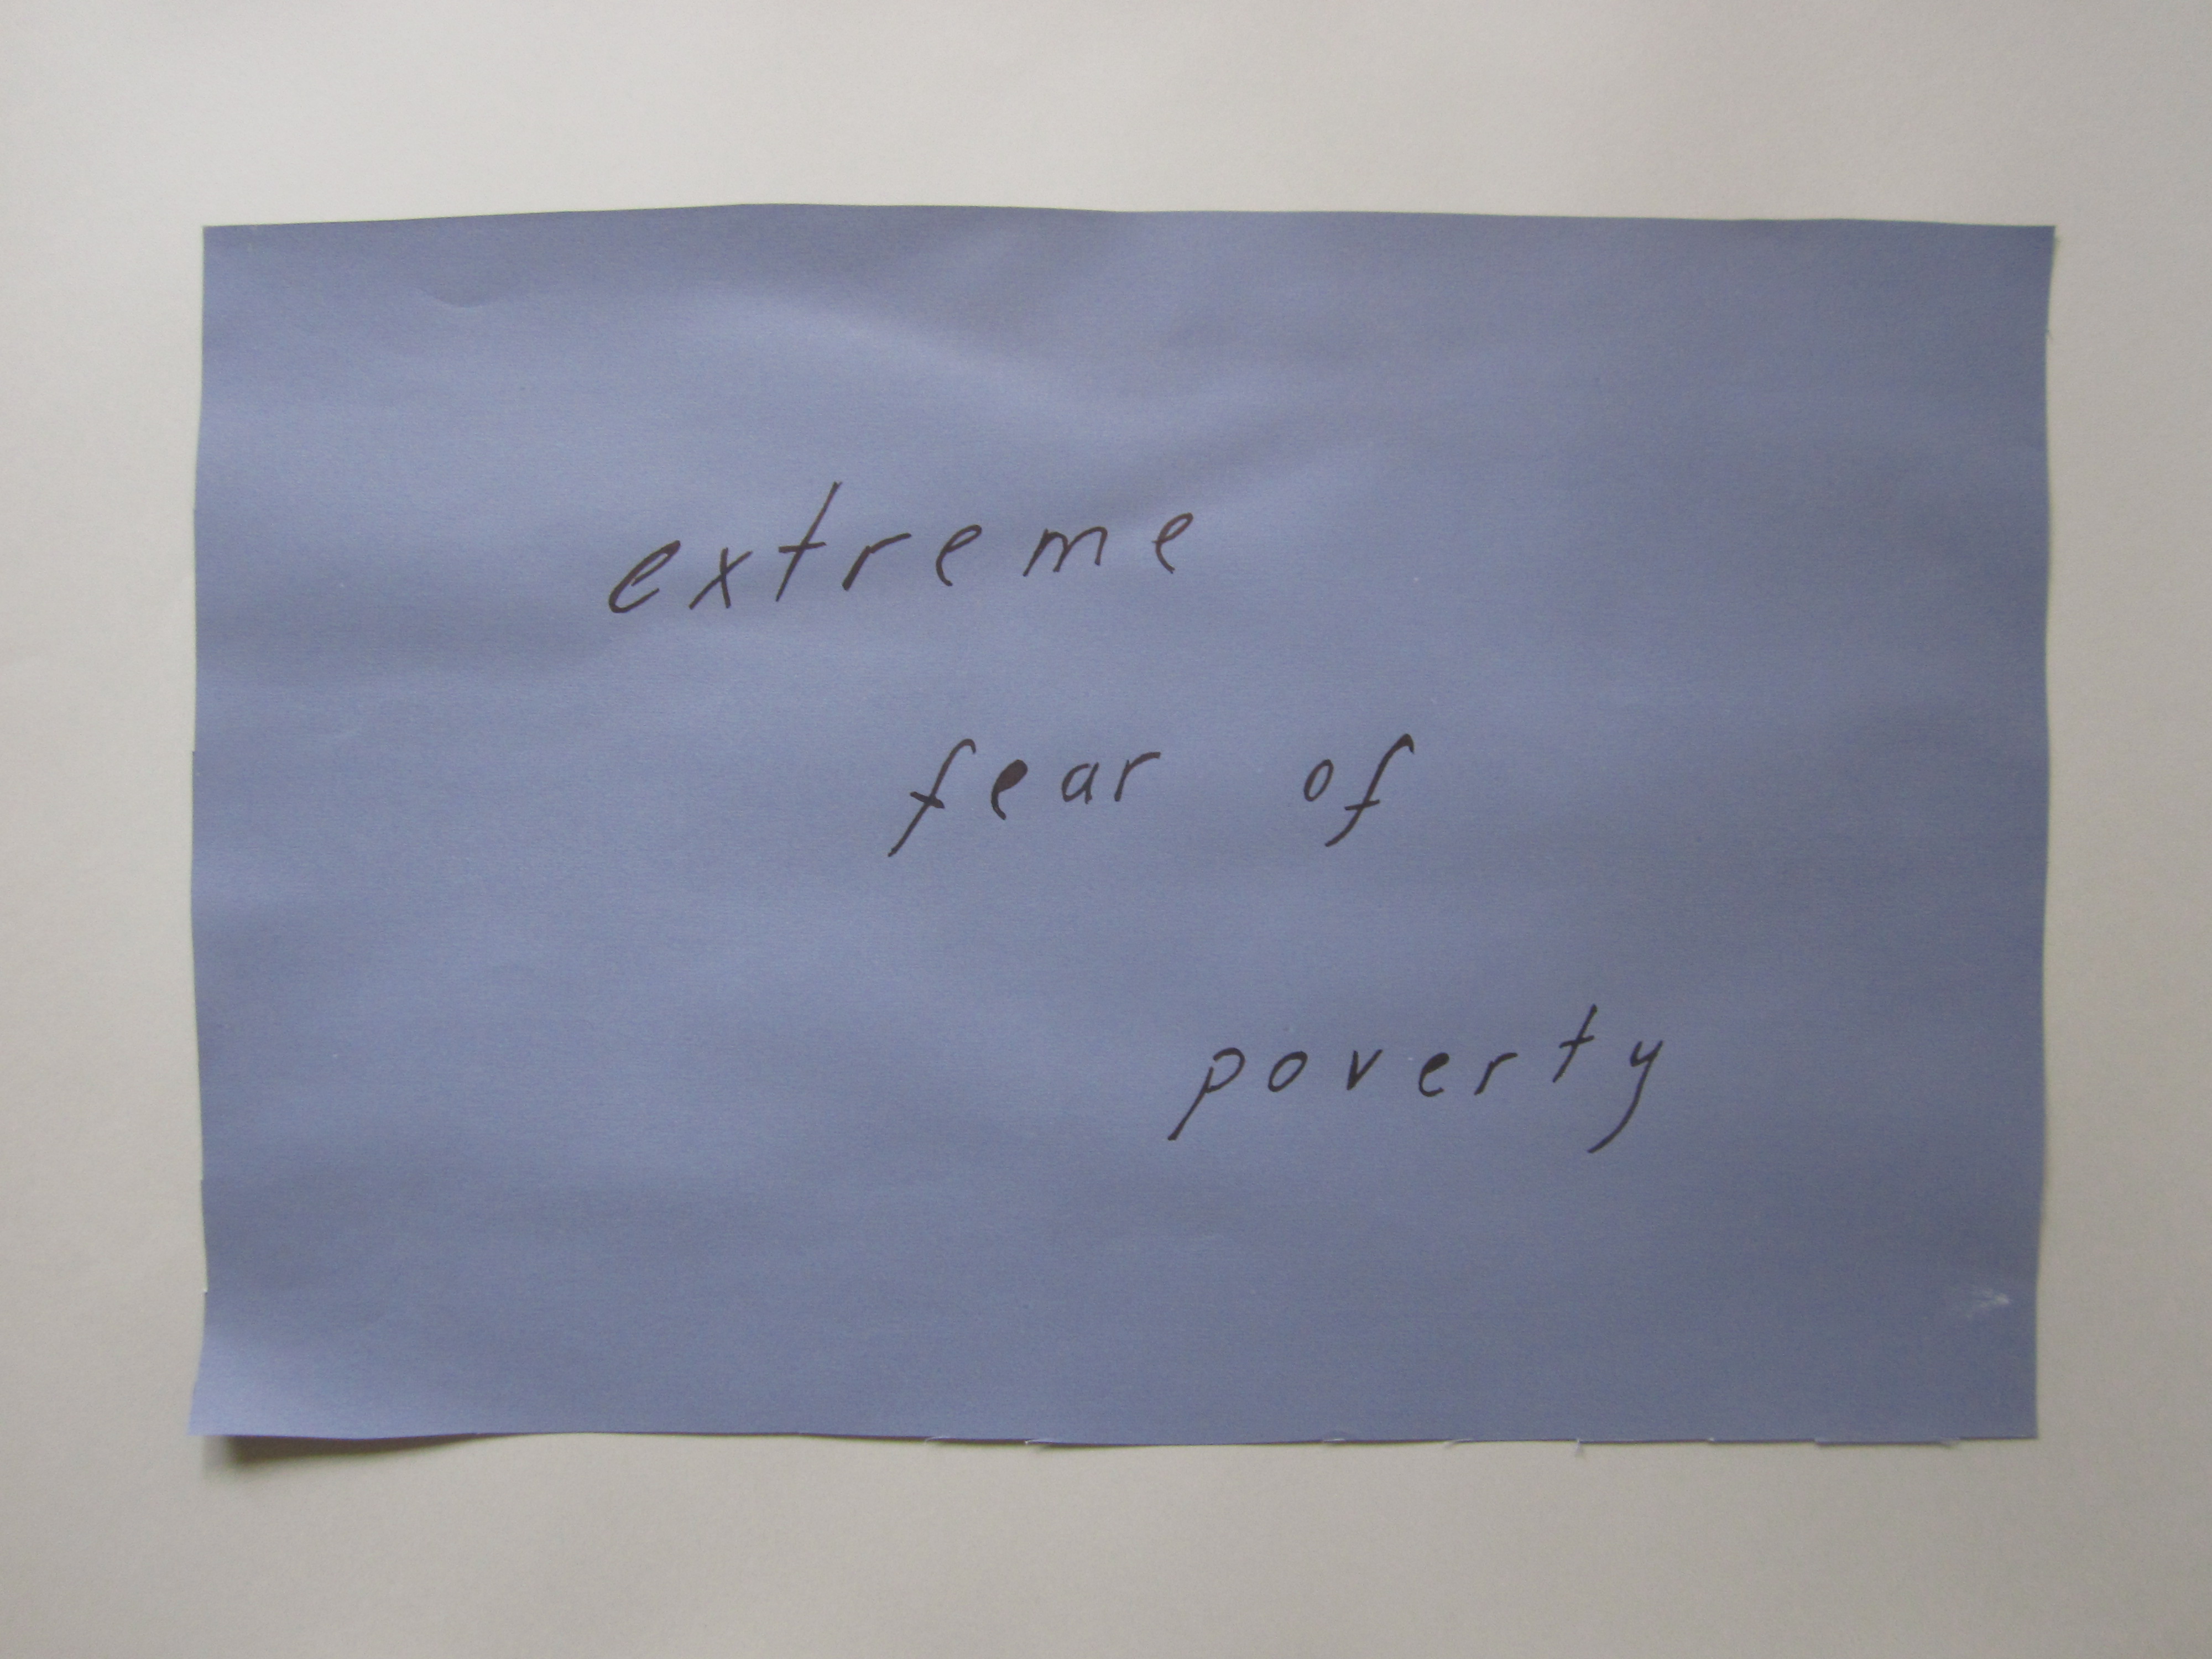 extreme
fear of
poverty